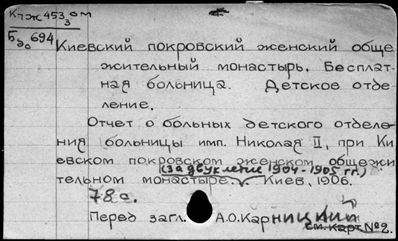 КпЖ 453₃ 0м
Б₂₀ 694
Киевский покровский женский обще
жительный монастырь. Бесплат-
ная больница. Детское отде-
ление.
Отчет о больных детского отделе-
ния больницы имп. Николая II, при Ки
евском покровском женском общежи
(за двухлетие 1904-1905 гг.)
тельном монастыре. Киев, 1906.
78 с.
Перед загл. А.О. Карницкий
см. карт №2.